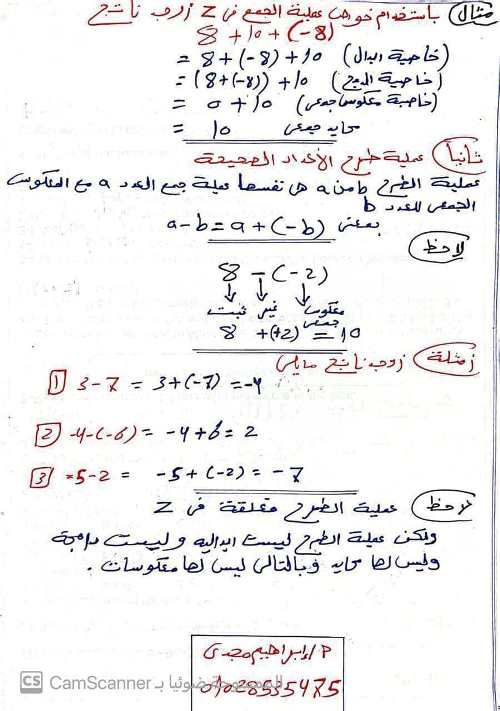 مثال باستخدام خواص عملية الجمع فى Z أوجد ناتج
8 + 10 + (-8)
= 8 + (-8) + 10 (خاصية الابدال)
= (8 + (-8)) + 10 (خاصية الدمج)
= 0 + 10 (خاصية معكوس جمعى)
= 10 محايد جمعى
ثانيا عملية طرح الأعداد الصحيحة
عملية الطرح b من a هى نفسها عملية جمع العدد a مع المعكوس
الجمعى للعدد b
بمعنى a - b = a + (-b)
لاحظ
8 - (-2)
ثبت غير معكوس جمعى
8 + (+2) = 10
أمثلة أوجد ناتج مايلى
1 3 - 7 = 3 + (-7) = -4
2 -4 - (-6) = -4 + 6 = 2
3 -5 - 2 = -5 + (-2) = -7
لاحظ عملية الطرح مغلقة فى Z
ولكن عملية الطرح ليست ابداليه وليست دامجة
وليس لها محايد وبالتالى ليس لها معكوسات .
أ/ إبراهيم مجدى
CS CamScanner الممسوحة ضوئيا بـ